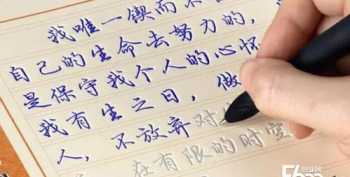 我唯一锲而不
自己的生命去努力的,
是保守我个人的心怀
我有生之日,做
人,不放弃对
在有限的时空